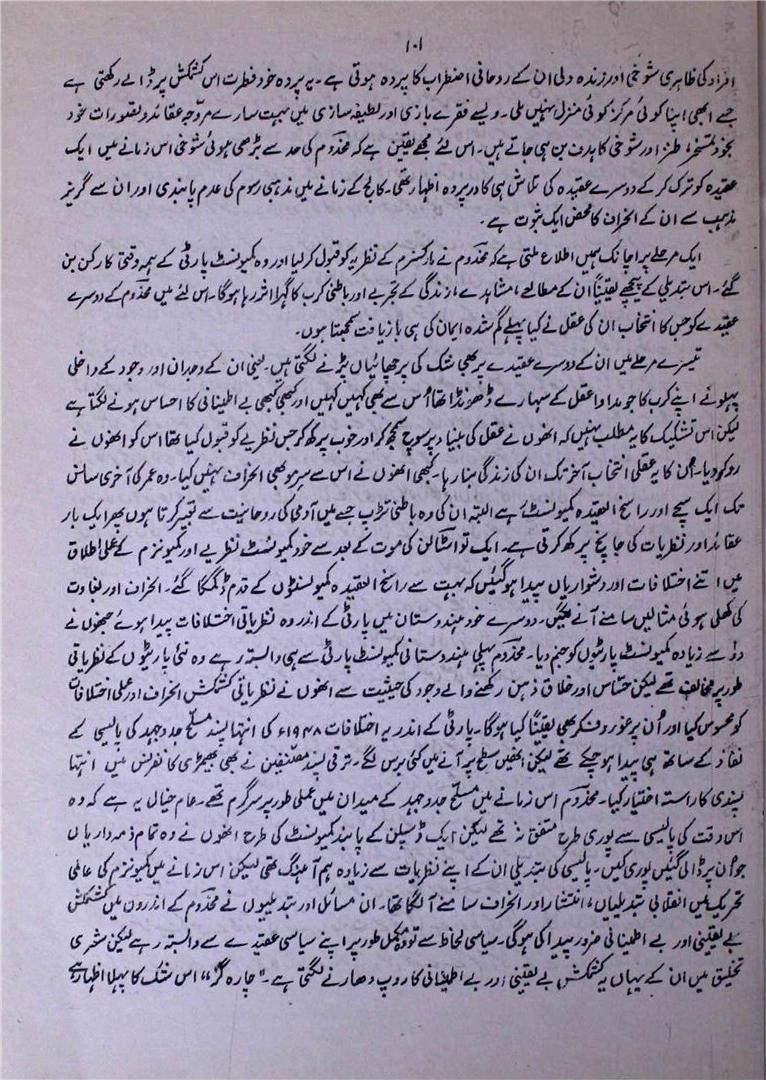 ۱۰۱
افراد کی ظاہری شوخی اور زندہ دلی ان کے روحانی اضطراب کا پردہ ہوتی ہے۔ یہ پردہ خود فطرت اس کشمکش پر ڈالے رکھتی ہے
جسے ابھی اپنا کوئی مرکز، کوئی منزل نہیں ملی۔ ویسے فقرے بازی اور لطیفہ سازی میں بہت سارے مروّجہ عقائد و تصورات خود
بخود تمسخر، طنز اور شوخی کا ہدف بن ہی جاتے ہیں۔ اس لئے مجھے یقین ہے کہ مخدوم کی حد سے بڑھی ہوئی شوخی اس زمانے میں ایک
عقیدہ کو ترک کر کے دوسرے عقیدہ کی تلاش ہی کا در پردہ اظہار تھی۔ کالج کے زمانے میں مذہبی رسوم کی عدم پابندی اور ان سے گریز
مذہب سے ان کے انحراف کا محض ایک ثبوت ہے۔
ایک مرحلے پر اچانک ہمیں اطلاع ملتی ہے کہ مخدوم نے مارکسزم کے نظریہ کو قبول کر لیا اور وہ کمیونسٹ پارٹی کے ہمہ وقتی کارکن بن
گئے۔ اس تبدیلی کے پیچھے یقیناً ان کے مطالعے، مشاہدے، زندگی کے تجربے اور باطنی کرب کا گہرا اثر رہا ہوگا۔ اس لئے میں مخدوم کے دوسرے
عقیدے کو جس کا انتخاب ان کی عقل نے کیا پہلے گم شدہ ایمان کی ہی بازیافت سمجھتا ہوں۔
تیسرے مرحلے میں ان کے دوسرے عقیدے پر بھی شک کی پرچھائیاں پڑنے لگتی ہیں۔ یعنی ان کے وجدان اور وجود کے داخلی
پہلو نے اپنے کرب کا جو مداوا عقل کے سہارے ڈھونڈا تھا اُس سے بھی کہیں کہیں اور کبھی کبھی بے اطمینانی کا احساس ہونے لگتا ہے
لیکن اس تشکیک کا یہ مطلب نہیں کہ انھوں نے عقل کی بنیاد پر سوچ سمجھ کر اور خوب پرکھ کر جس نظریے کو قبول کیا تھا اس کو انھوں نے
رد کر دیا۔ اُن کا یہ عقلی انتخاب آخر تک ان کی زندگی بنا رہا۔ کبھی انھوں نے اس سے سرِ مو بھی انحراف نہیں کیا۔ وہ عمر کی آخری سانس
تک ایک سچے اور راسخ العقیدہ کمیونسٹ رہے البتہ ان کی وہ باطنی تڑپ جسے میں آدمی کی روحانیت سے تعبیر کرتا ہوں پھر ایک بار
عقائد اور نظریات کی جانچ پرکھ کرتی ہے۔ ایک تو اسٹالن کی موت کے بعد سے خود کمیونسٹ نظریے اور کمیونزم کے عملی اطلاق
میں اتنے اختلافات اور دشواریاں پیدا ہو گئیں کہ بہت سے راسخ العقیدہ کمیونسٹوں کے قدم ڈگمگا گئے۔ انحراف اور بغاوت
کی کھلی ہوئی مثالیں سامنے آنے لگیں۔ دوسرے خود ہندوستان میں پارٹی کے اندر وہ نظریاتی اختلافات پیدا ہوئے جنھوں نے
دو سے زیادہ کمیونسٹ پارٹیوں کو جنم دیا۔ مخدوم پہلی ہندوستانی کمیونسٹ پارٹی سے ہی وابستہ رہے وہ نئی پارٹیوں کے نظریاتی
طور پر مخالف تھے لیکن حسّاس اور خلاق ذہن رکھنے والے وجود کی حیثیت سے انھوں نے نظریاتی کشمکش انحراف اور عملی اختلافات
کو محسوس کیا اور اُن پر غور و فکر بھی یقیناً کیا ہوگا۔ پارٹی کے اندر یہ اختلافات ۱۹۴۸ء کی انتہا پسند مسلح جدوجہد کی پالیسی کے
نفاذ کے ساتھ ہی پیدا ہو چکے تھے لیکن انھیں سطح پر آنے میں کئی برس لگے۔ ترقی پسند مصنفین نے بھی بھیمڑی کانفرنس میں انتہا
پسندی کا راستہ اختیار کیا۔ مخدوم اس زمانے میں مسلح جدوجہد کے میدان میں عملی طور پر سرگرم تھے۔ عام خیال یہ ہے کہ وہ
اس وقت کی پالیسی سے پوری طرح متفق نہ تھے لیکن ایک ڈسپلن کے پابند کمیونسٹ کی طرح انھوں نے وہ تمام ذمہ داریاں
جو اُن پر ڈالی گئیں پوری کیں۔ پالیسی کی تبدیلی ان کے اپنے نظریات سے زیادہ ہم آہنگ تھی لیکن اس زمانے میں کمیونزم کی عالمی
تحریک میں انقلابی تبدیلیاں، انتشار اور انحراف سامنے آنے لگا تھا۔ ان مسائل اور تبدیلیوں نے مخدوم کے اندرون میں کشمکش
بے یقینی اور بے اطمینانی ضرور پیدا کی ہوگی۔ سیاسی لحاظ سے تو وہ مکمل طور پر اپنے سیاسی عقیدے سے وابستہ رہے لیکن شعری
تخلیق میں ان کے یہاں یہ کشمکش بے یقینی اور بے اطمینانی کا روپ دھارنے لگتی ہے۔ "چارہ گر" اس شک کا پہلا اظہار ہے